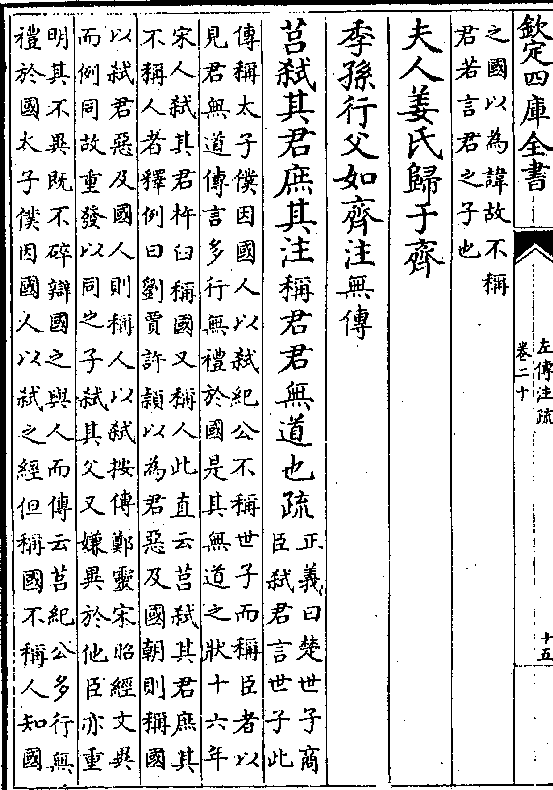 欽定四庫全書
左傳注疏
卷二十
十五
之國以為諱故不稱
君若言君之子也
夫人姜氏歸于齊
季孫行父如齊注無傳
莒弒其君庶其注稱君君無道也疏
正義曰楚世子商
臣弒君言世子此
傳稱太子僕因國人以弒紀公不稱世子而稱臣者以
見君無道傳言多行無禮於國是其無道之狀十六年
宋人弒其君杵臼稱國又稱人此直云莒弒其君庶其
不稱人者釋例曰劉賈許頴以為君惡及國朝則稱國
以弒君惡及國人則稱人以弒按傳鄭靈宋昭經文異
而例同故重發以同之子弒其父又嫌異於他臣亦重
明其不異既不碎辯國之與人而傳云莒紀公多行無
禮於國太子僕因國人以弒之經但稱國不稱人知國